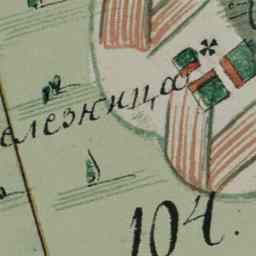 елезница
104.